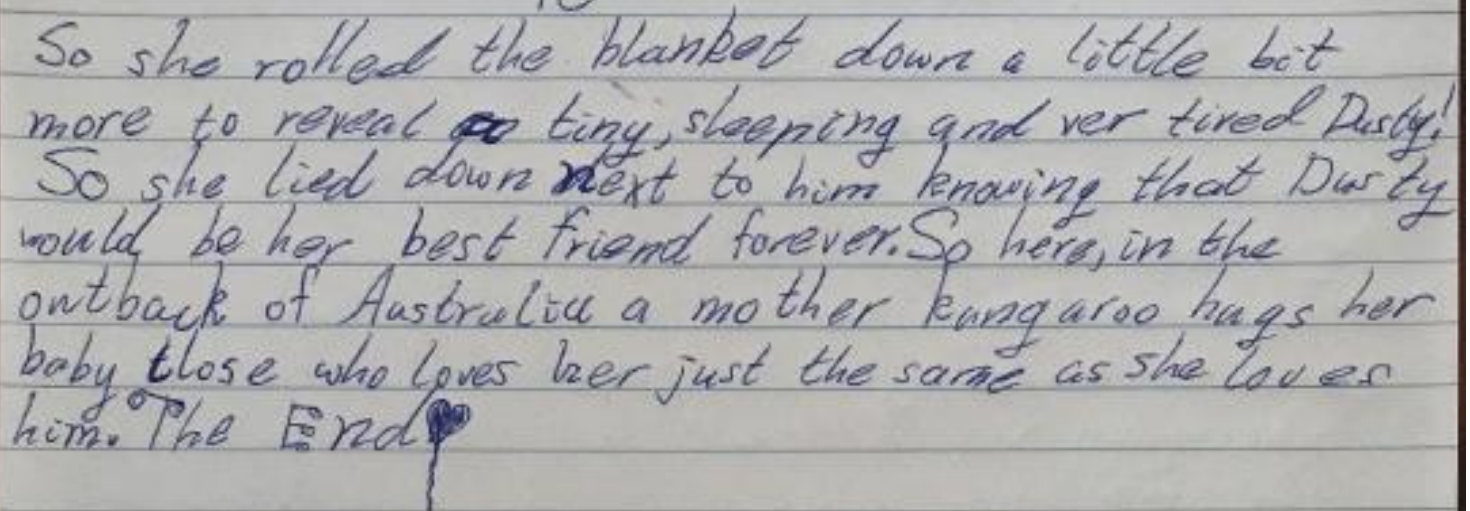 So she rolled the blanket down a little bit
more to reveal tiny, sleeping and ver tired Dusty!
So she lied down next to him knowing that Dusty
would be her best friend forever. So here, in the
outback of Australia a mother kangaroo hugs her
baby close who loves her just the same as she loves
him. The End